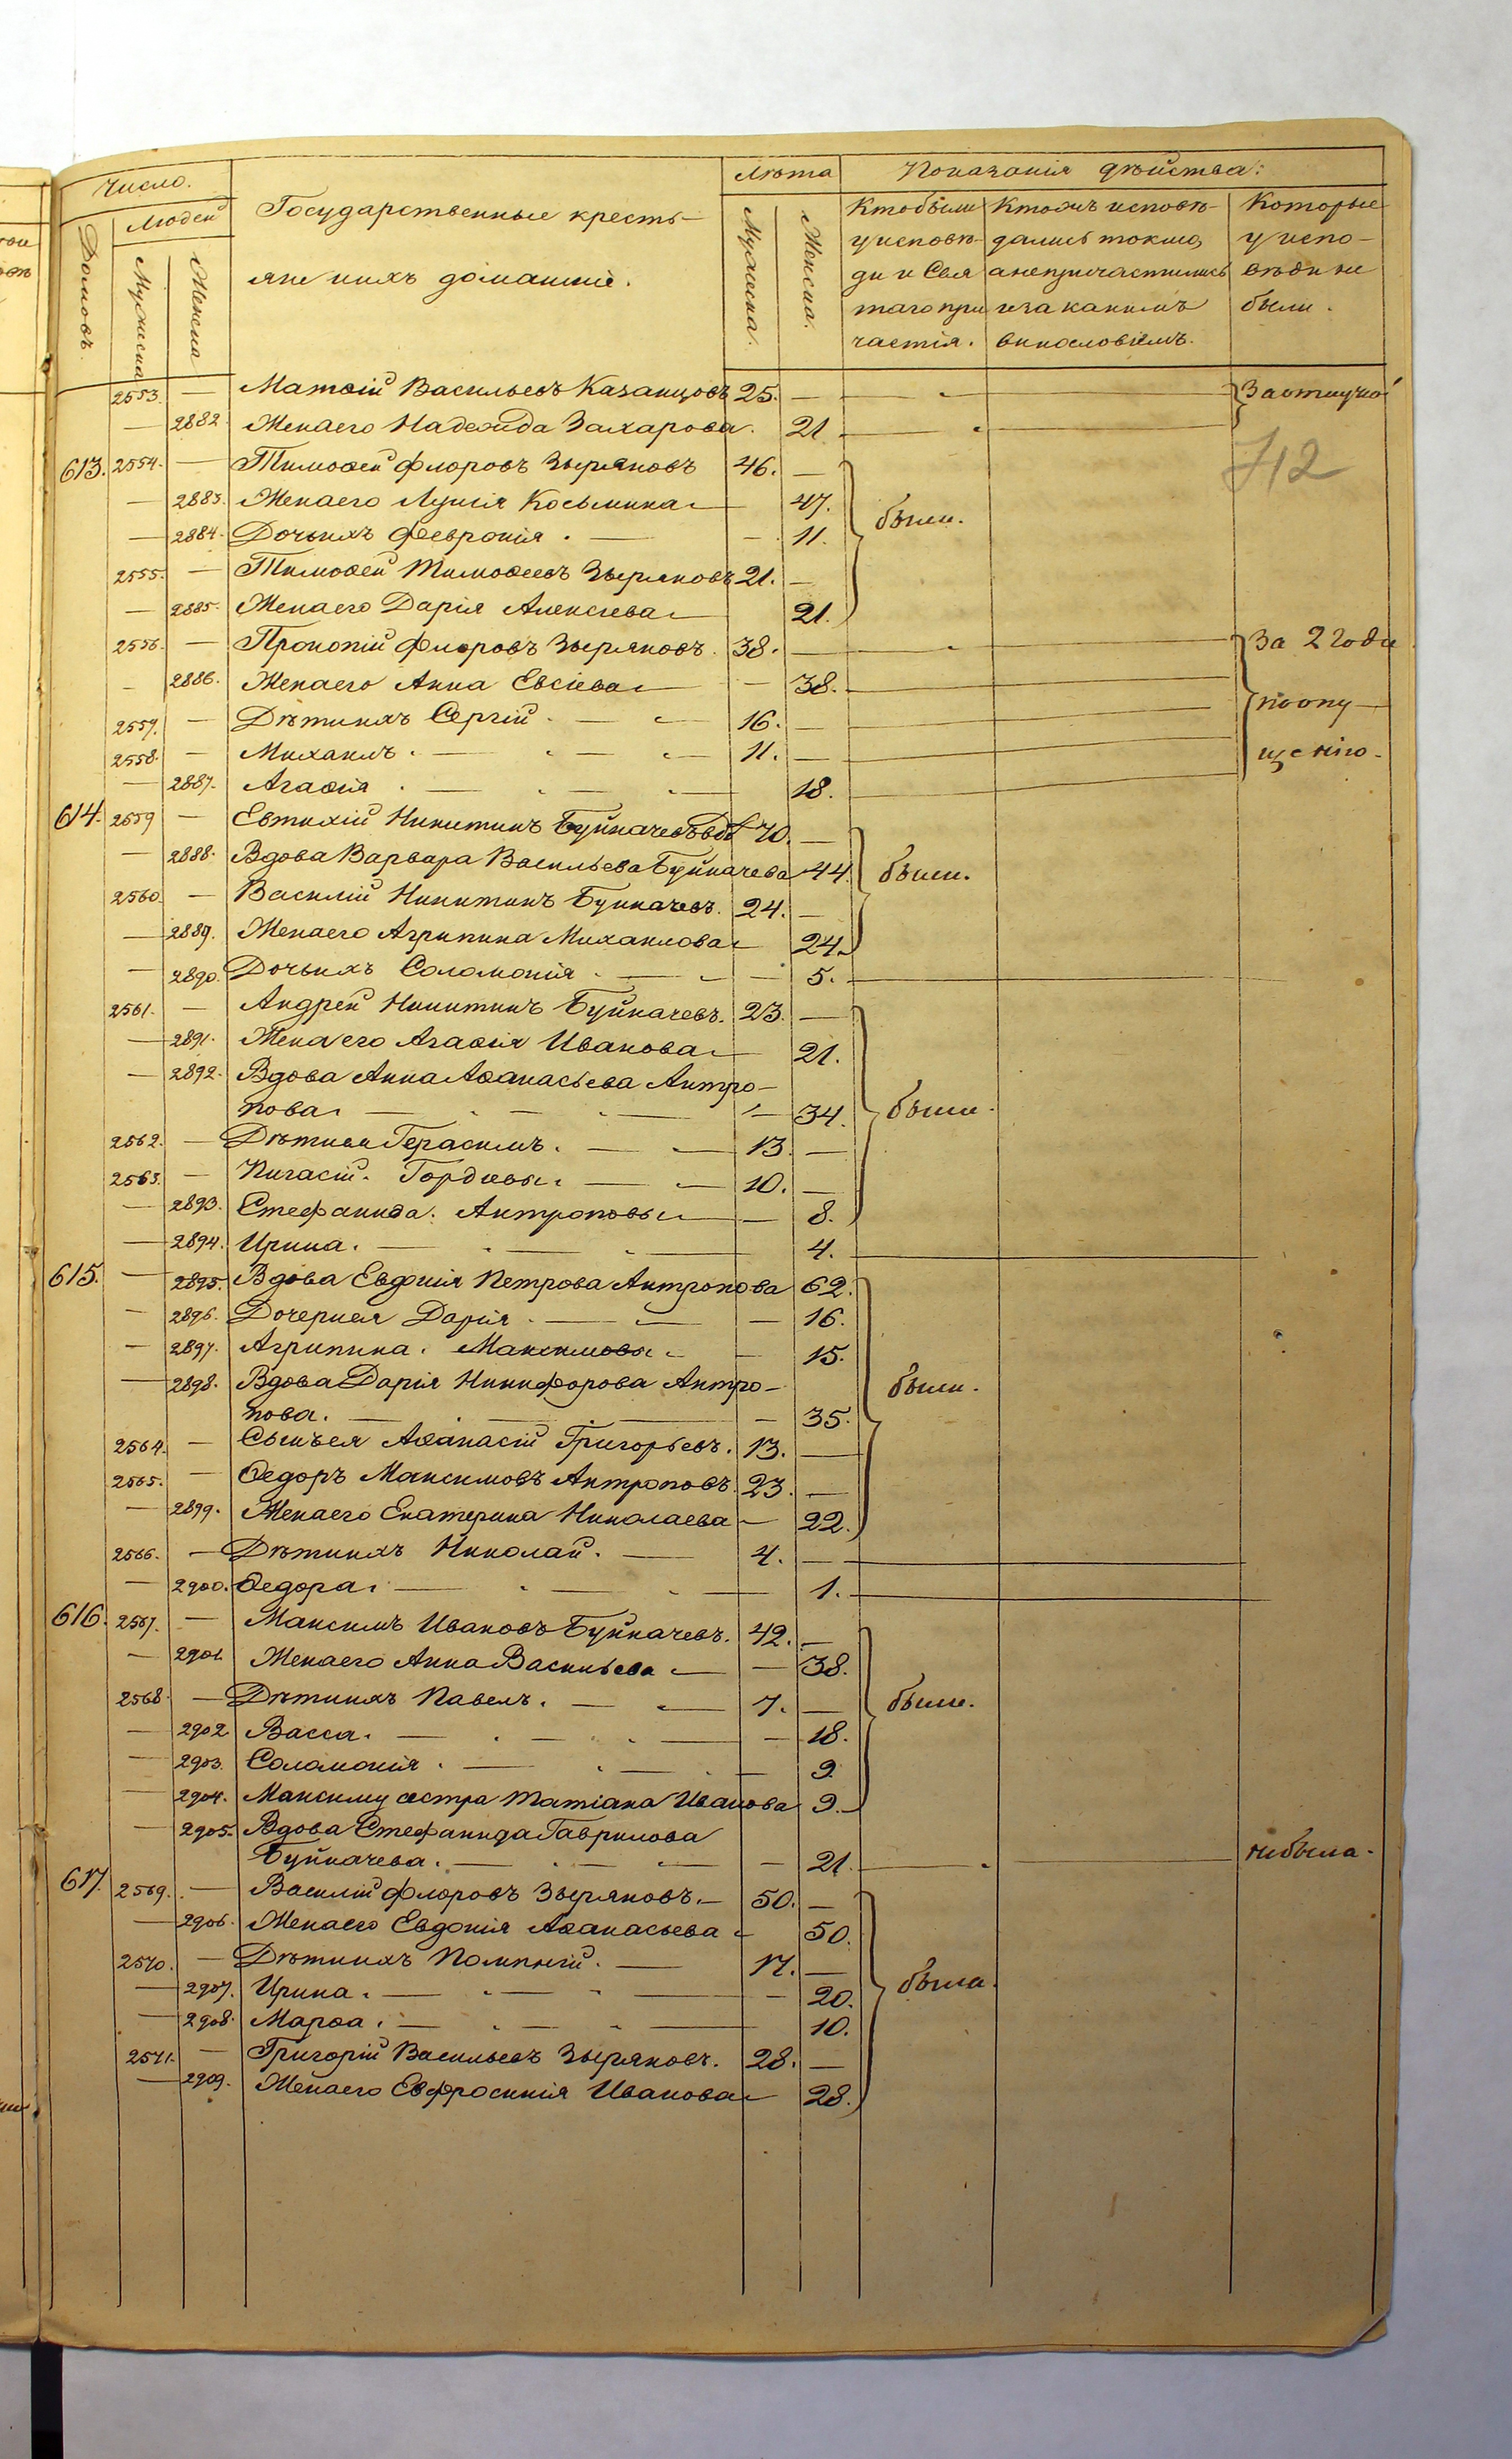 Число.
Лѣта
Показанія дѣйства:
Домовъ.
Людей
Мужеска
Женска
Государственные кресть-
яне ихъ домашніе.
Мужеска.
Женска.
Кто были
у исповѣ-
ди и Свя
таго при
частія.
Кто жъ исповѣ-
дались токмо,
а не причастились
и за какимъ
винословіемъ.
Которые
у испо-
вѣди не
были.
2553. — Матѳій Васильевъ Казанцовъ 25. — За отлучкой
— 2882. Жена его Надежда Захарова. 21.
712
613. 2554. — Тимоѳей Флоровъ Зыряновъ 46. —
— 2883. Жена его Лукія Косьмина 47. были.
— 2884. Дочь ихъ Феврония. — 11.
2555. — Тимоѳей Тимоѳеевъ Зыряновъ 21. —
— 2885. Жена его Дарія Алексіева 21.
2556. — Прокопій Флоровъ Зыряновъ. 38. — За 2 года
— 2886. Жена его Анна Евсіева — 38.
2557. — Дѣти ихъ Сергій. 16. — по опу-
2558. — Михаилъ. 11. — щенію.
— 2887. Агаѳія. 18.
614. 2559 — Евтихій Никитинъ Буйначевъ вдв 70. —
— 2888. Вдова Варвара Васильева Буйначева 44. были.
2560. — Василій Никитинъ Буйначевъ. 24. —
— 2889. Жена его Агрипина Михаилова 24.
— 2890. Дочь ихъ Соломонія. — 5.
2561. — Андрей Никитинъ Буйначевъ. 23. —
— 2891. Жена его Агаѳія Иванова 21.
— 2892. Вдова Анна Аѳанасьева Антро-
пова. — 34. были.
2562. — Дѣти ея Герасимъ. 13. —
2563. — Пигасій. Гордѣевы. 10. —
— 2893. Стефанида. Антроповы — 8.
— 2894. Ирина. 4.
615. — 2895. Вдова Евдокія Петрова Антропова 62.
— 2896. Дочери ея Дарія. — 16.
— 2897. Агрипина. Максимовы. — 15.
— 2898. Вдова Дарія Никифорова Антро- были.
пова. — 35.
2564. — Сынъ ея Аѳанасій Григорьевъ. 13. —
2565. — Ѳедоръ Максимовъ Антроповъ. 23. —
— 2899. Жена его Екатерина Николаева — 22.
2566. — Дѣти ихъ Николай. 4. —
— 2900. Ѳедора. 1.
616. 2567. — Максимъ Ивановъ Буйначевъ. 42. —
— 2901. Жена его Анна Васильева — 38.
2568. — Дѣти ихъ Павелъ. 7. — были.
— 2902 Васса. — 18.
— 2903. Соломонія. — 9.
— 2904. Максиму сестра Татіана Иванова 9.
— 2905. Вдова Стефанида Гаврилова
Буйначева. — 21. не была.
617. 2569. — Василій Флоровъ Зыряновъ. 50. —
— 2906. Жена его Евдокія Аѳанасьева 50.
2570. — Дѣти ихъ 17. —
— 2907. Ирина. — 20. была.
— 2908. Марѳа. 10.
2571. — Григорій Васильевъ Зыряновъ. 28. —
— 2909. Жена его Евфросинія Иванова 28.